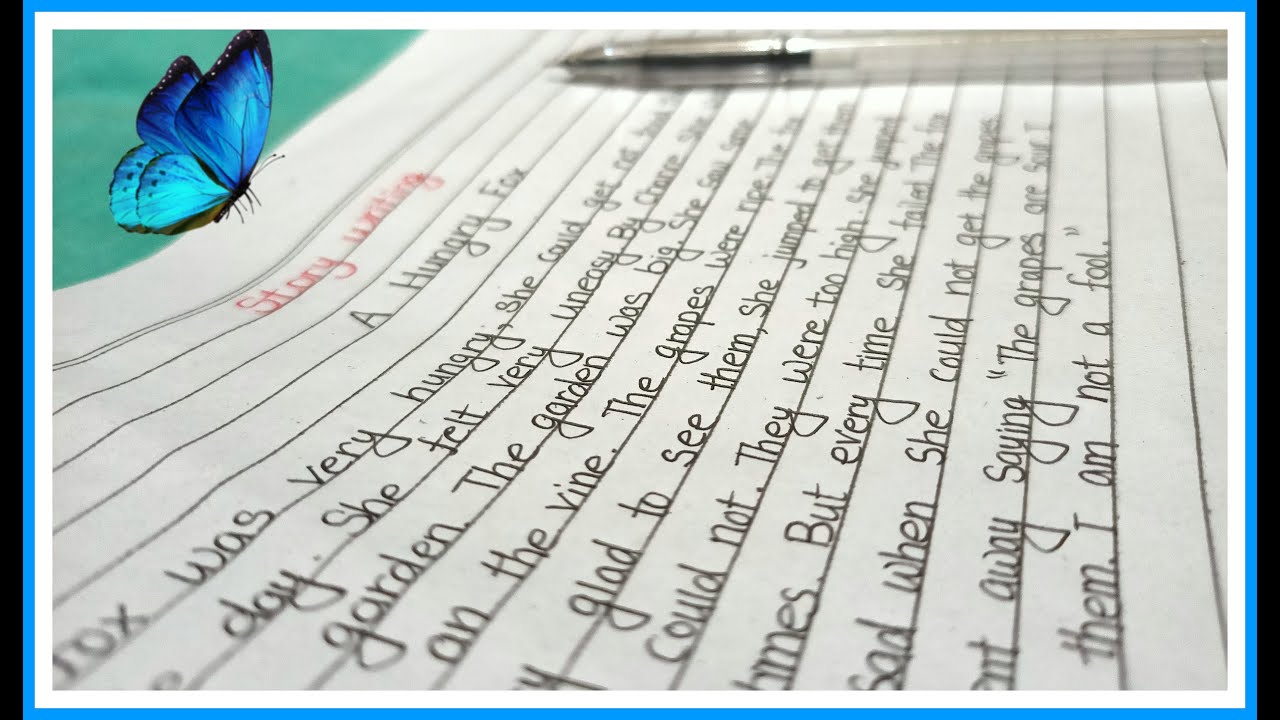 Story writing
A Hungry Fox
fox was very hungry, she could get no
day. She felt very uneasy By chance she
garden. The garden was big. She saw some
an the vine. The grapes were ripe. The fox
glad to see them, she jumped to get them
Could not. They were too high. she jumped
times. But every time she failed The fox
Sad when she could not get the grapes
away saying "The grapes are sour I
them. I am not a fool."